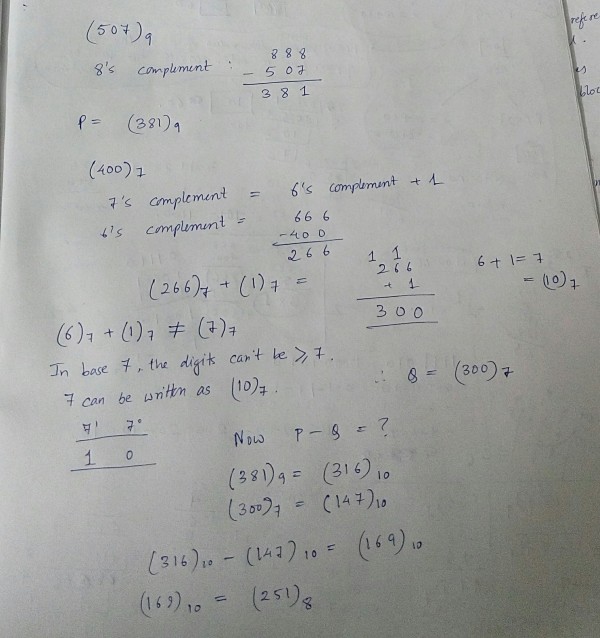 (507)9
8's complement :
8 8 8
- 5 07
3 8 1
P = (381)9
(400)7
7's complement = 6's complement + 1
6's complement =
66 6
-40 0
2 6 6
(266)7 + (1)7 =
1 1
2 6 6
+ 1
3 0 0
6 + 1 = 7
= (10)7
(6)7 + (1)7 ≠ (7)7
In base 7, the digits can't be ⩾ 7.
7 can be written as (10)7.
7¹ 7⁰
1 0
∴ Q = (300)7
Now P - Q = ?
(381)9 = (316)10
(300)7 = (147)10
(316)10 - (147)10 = (169)10
(169)10 = (251)8